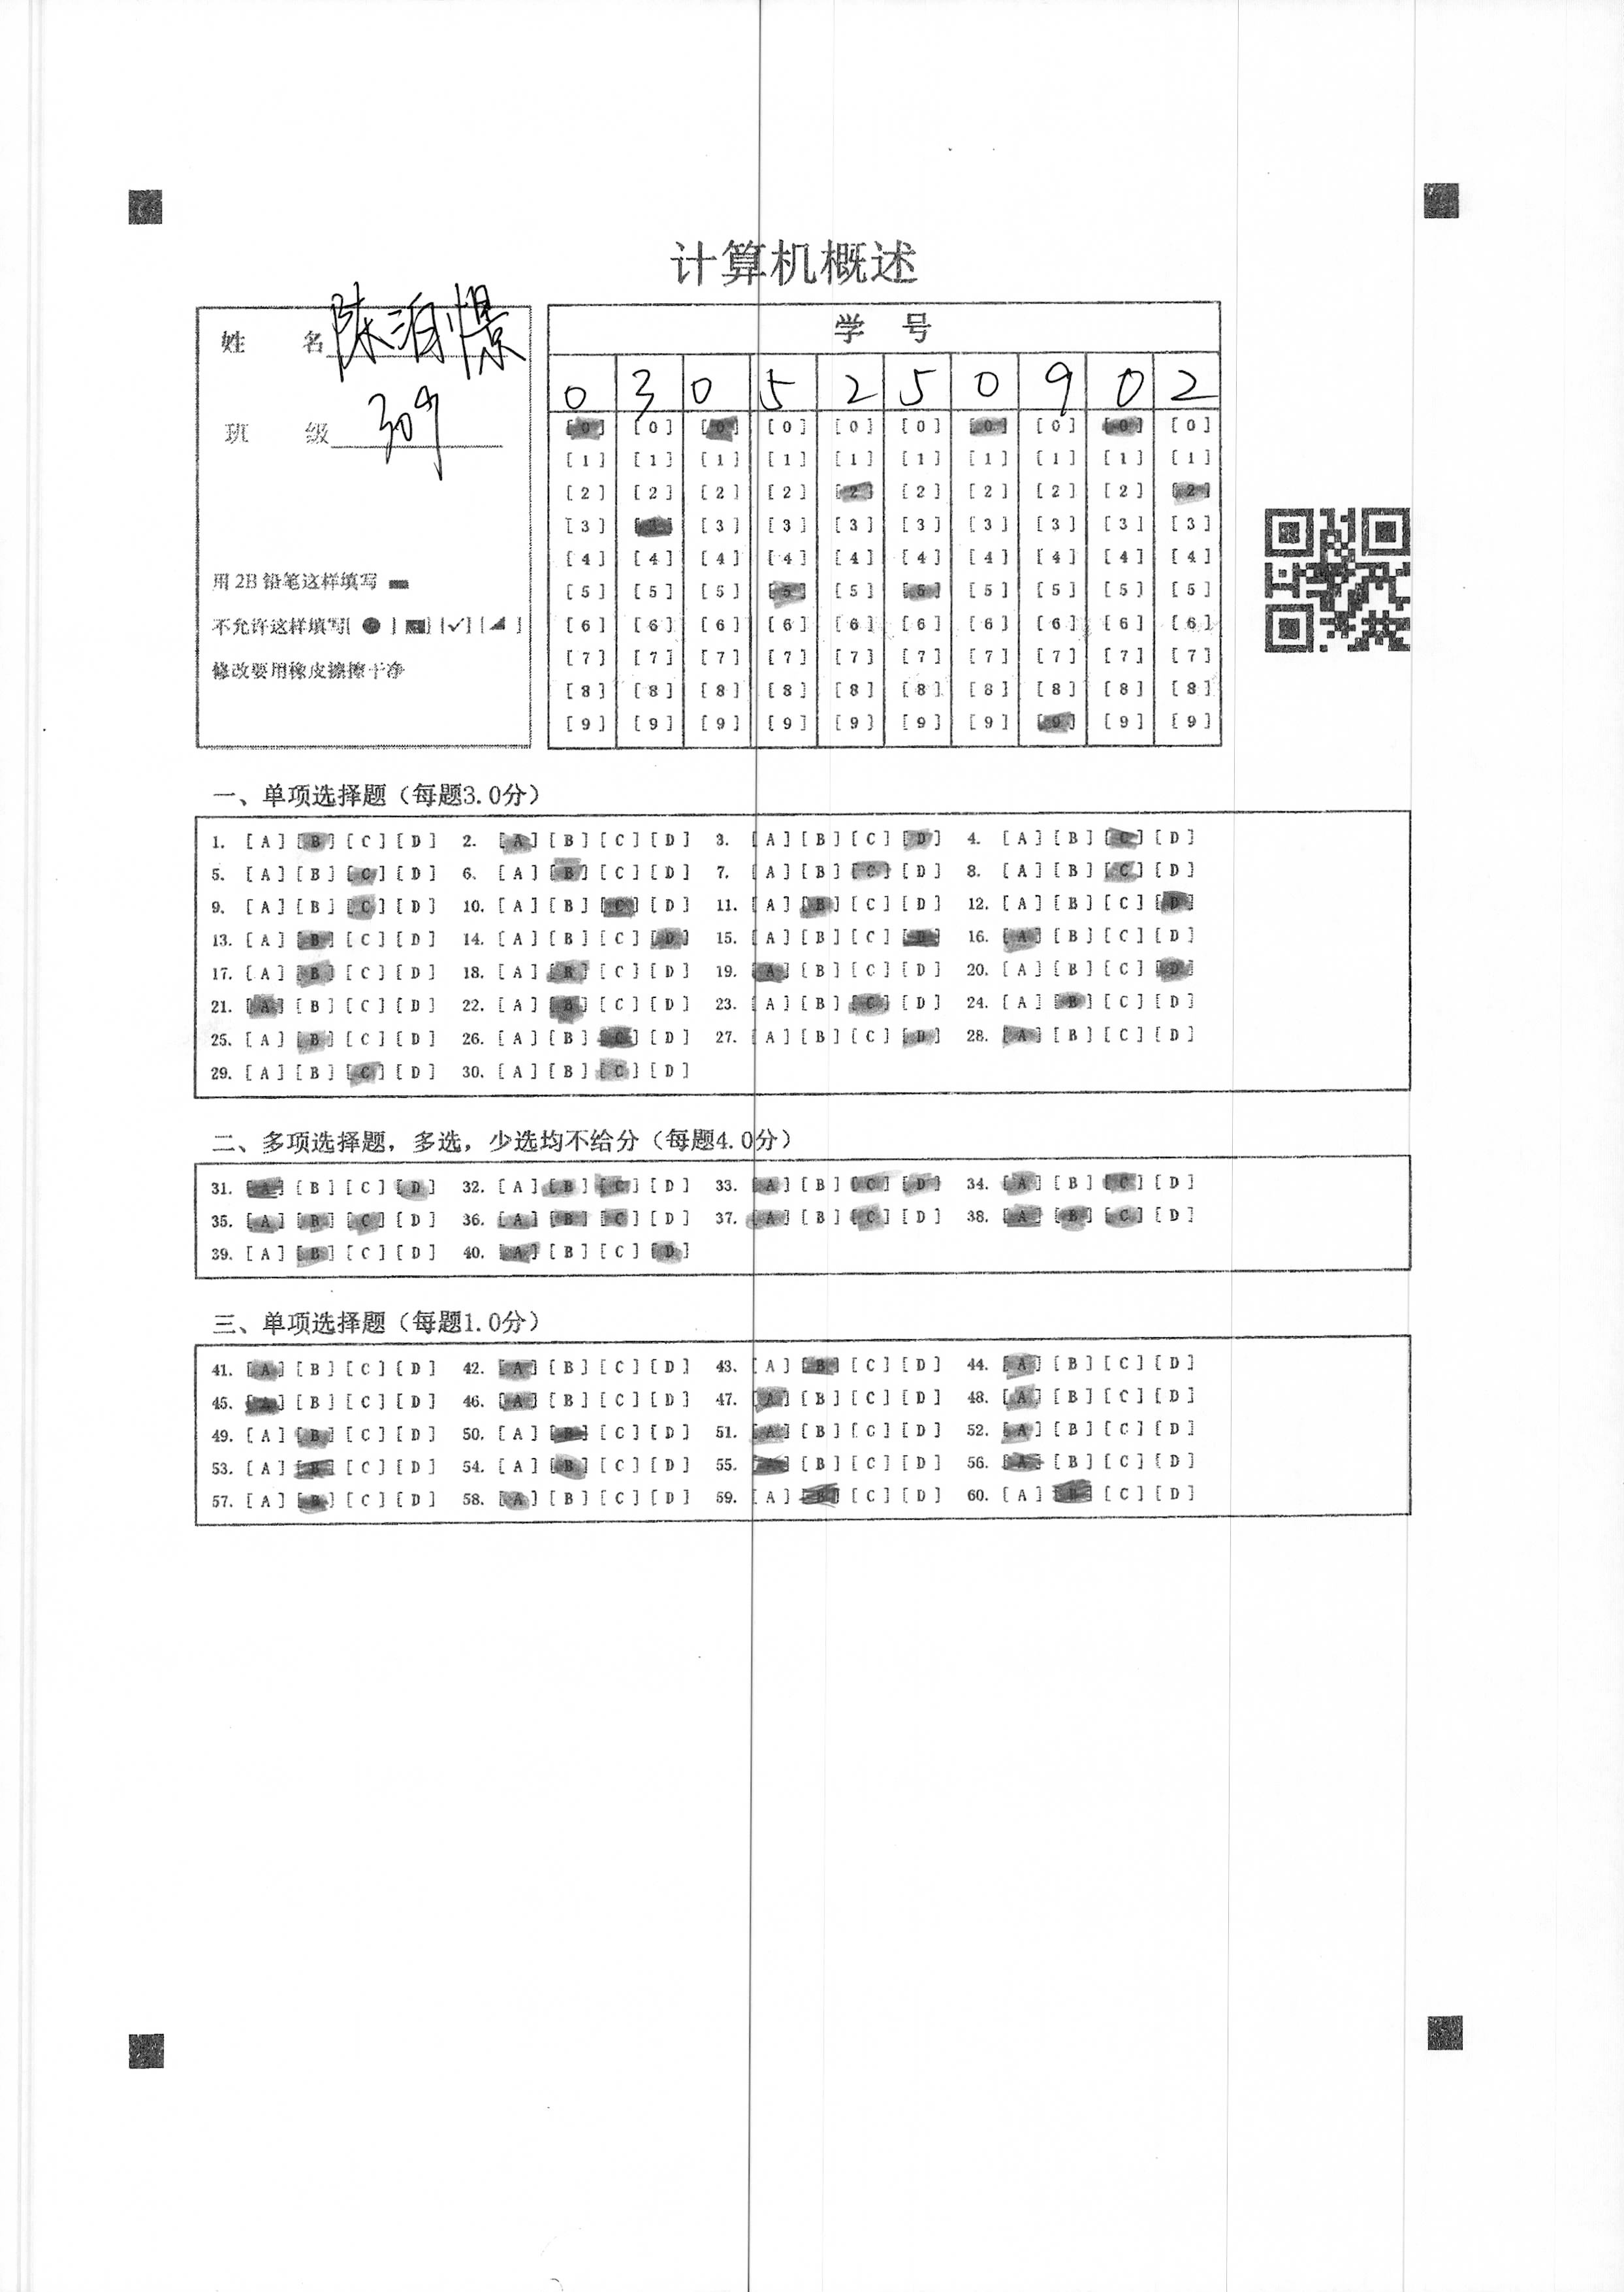 计算机概述
姓 名 陈泊憬
班 级 309
用 2B 铅笔这样填写
不允许这样填写[ ● ] [ ] [✓] [ ]
修改要用橡皮擦擦干净
学 号
0 3 0 5 2 5 0 9 0 2
[0] [0] [0] [0] [0] [0] [0] [0] [0] [0]
[1] [1] [1] [1] [1] [1] [1] [1] [1] [1]
[2] [2] [2] [2] [2] [2] [2] [2] [2] [2]
[3] [3] [3] [3] [3] [3] [3] [3] [3] [3]
[4] [4] [4] [4] [4] [4] [4] [4] [4] [4]
[5] [5] [5] [5] [5] [5] [5] [5] [5] [5]
[6] [6] [6] [6] [6] [6] [6] [6] [6] [6]
[7] [7] [7] [7] [7] [7] [7] [7] [7] [7]
[8] [8] [8] [8] [8] [8] [8] [8] [8] [8]
[9] [9] [9] [9] [9] [9] [9] [9] [9] [9]
一、单项选择题（每题3.0分）
1. [A] [B] [C] [D] 2. [A] [B] [C] [D] 3. [A] [B] [C] [D] 4. [A] [B] [C] [D]
5. [A] [B] [C] [D] 6. [A] [B] [C] [D] 7. [A] [B] [C] [D] 8. [A] [B] [C] [D]
9. [A] [B] [C] [D] 10. [A] [B] [C] [D] 11. [A] [B] [C] [D] 12. [A] [B] [C] [D]
13. [A] [B] [C] [D] 14. [A] [B] [C] [D] 15. [A] [B] [C] [D] 16. [A] [B] [C] [D]
17. [A] [B] [C] [D] 18. [A] [B] [C] [D] 19. [A] [B] [C] [D] 20. [A] [B] [C] [D]
21. [A] [B] [C] [D] 22. [A] [B] [C] [D] 23. [A] [B] [C] [D] 24. [A] [B] [C] [D]
25. [A] [B] [C] [D] 26. [A] [B] [C] [D] 27. [A] [B] [C] [D] 28. [A] [B] [C] [D]
29. [A] [B] [C] [D] 30. [A] [B] [C] [D]
二、多项选择题，多选，少选均不给分（每题4.0分）
31. [A] [B] [C] [D] 32. [A] [B] [C] [D] 33. [A] [B] [C] [D] 34. [A] [B] [C] [D]
35. [A] [B] [C] [D] 36. [A] [B] [C] [D] 37. [A] [B] [C] [D] 38. [A] [B] [C] [D]
39. [A] [B] [C] [D] 40. [A] [B] [C] [D]
三、单项选择题（每题1.0分）
41. [A] [B] [C] [D] 42. [A] [B] [C] [D] 43. [A] [B] [C] [D] 44. [A] [B] [C] [D]
45. [A] [B] [C] [D] 46. [A] [B] [C] [D] 47. [A] [B] [C] [D] 48. [A] [B] [C] [D]
49. [A] [B] [C] [D] 50. [A] [B] [C] [D] 51. [A] [B] [C] [D] 52. [A] [B] [C] [D]
53. [A] [B] [C] [D] 54. [A] [B] [C] [D] 55. [A] [B] [C] [D] 56. [A] [B] [C] [D]
57. [A] [B] [C] [D] 58. [A] [B] [C] [D] 59. [A] [B] [C] [D] 60. [A] [B] [C] [D]